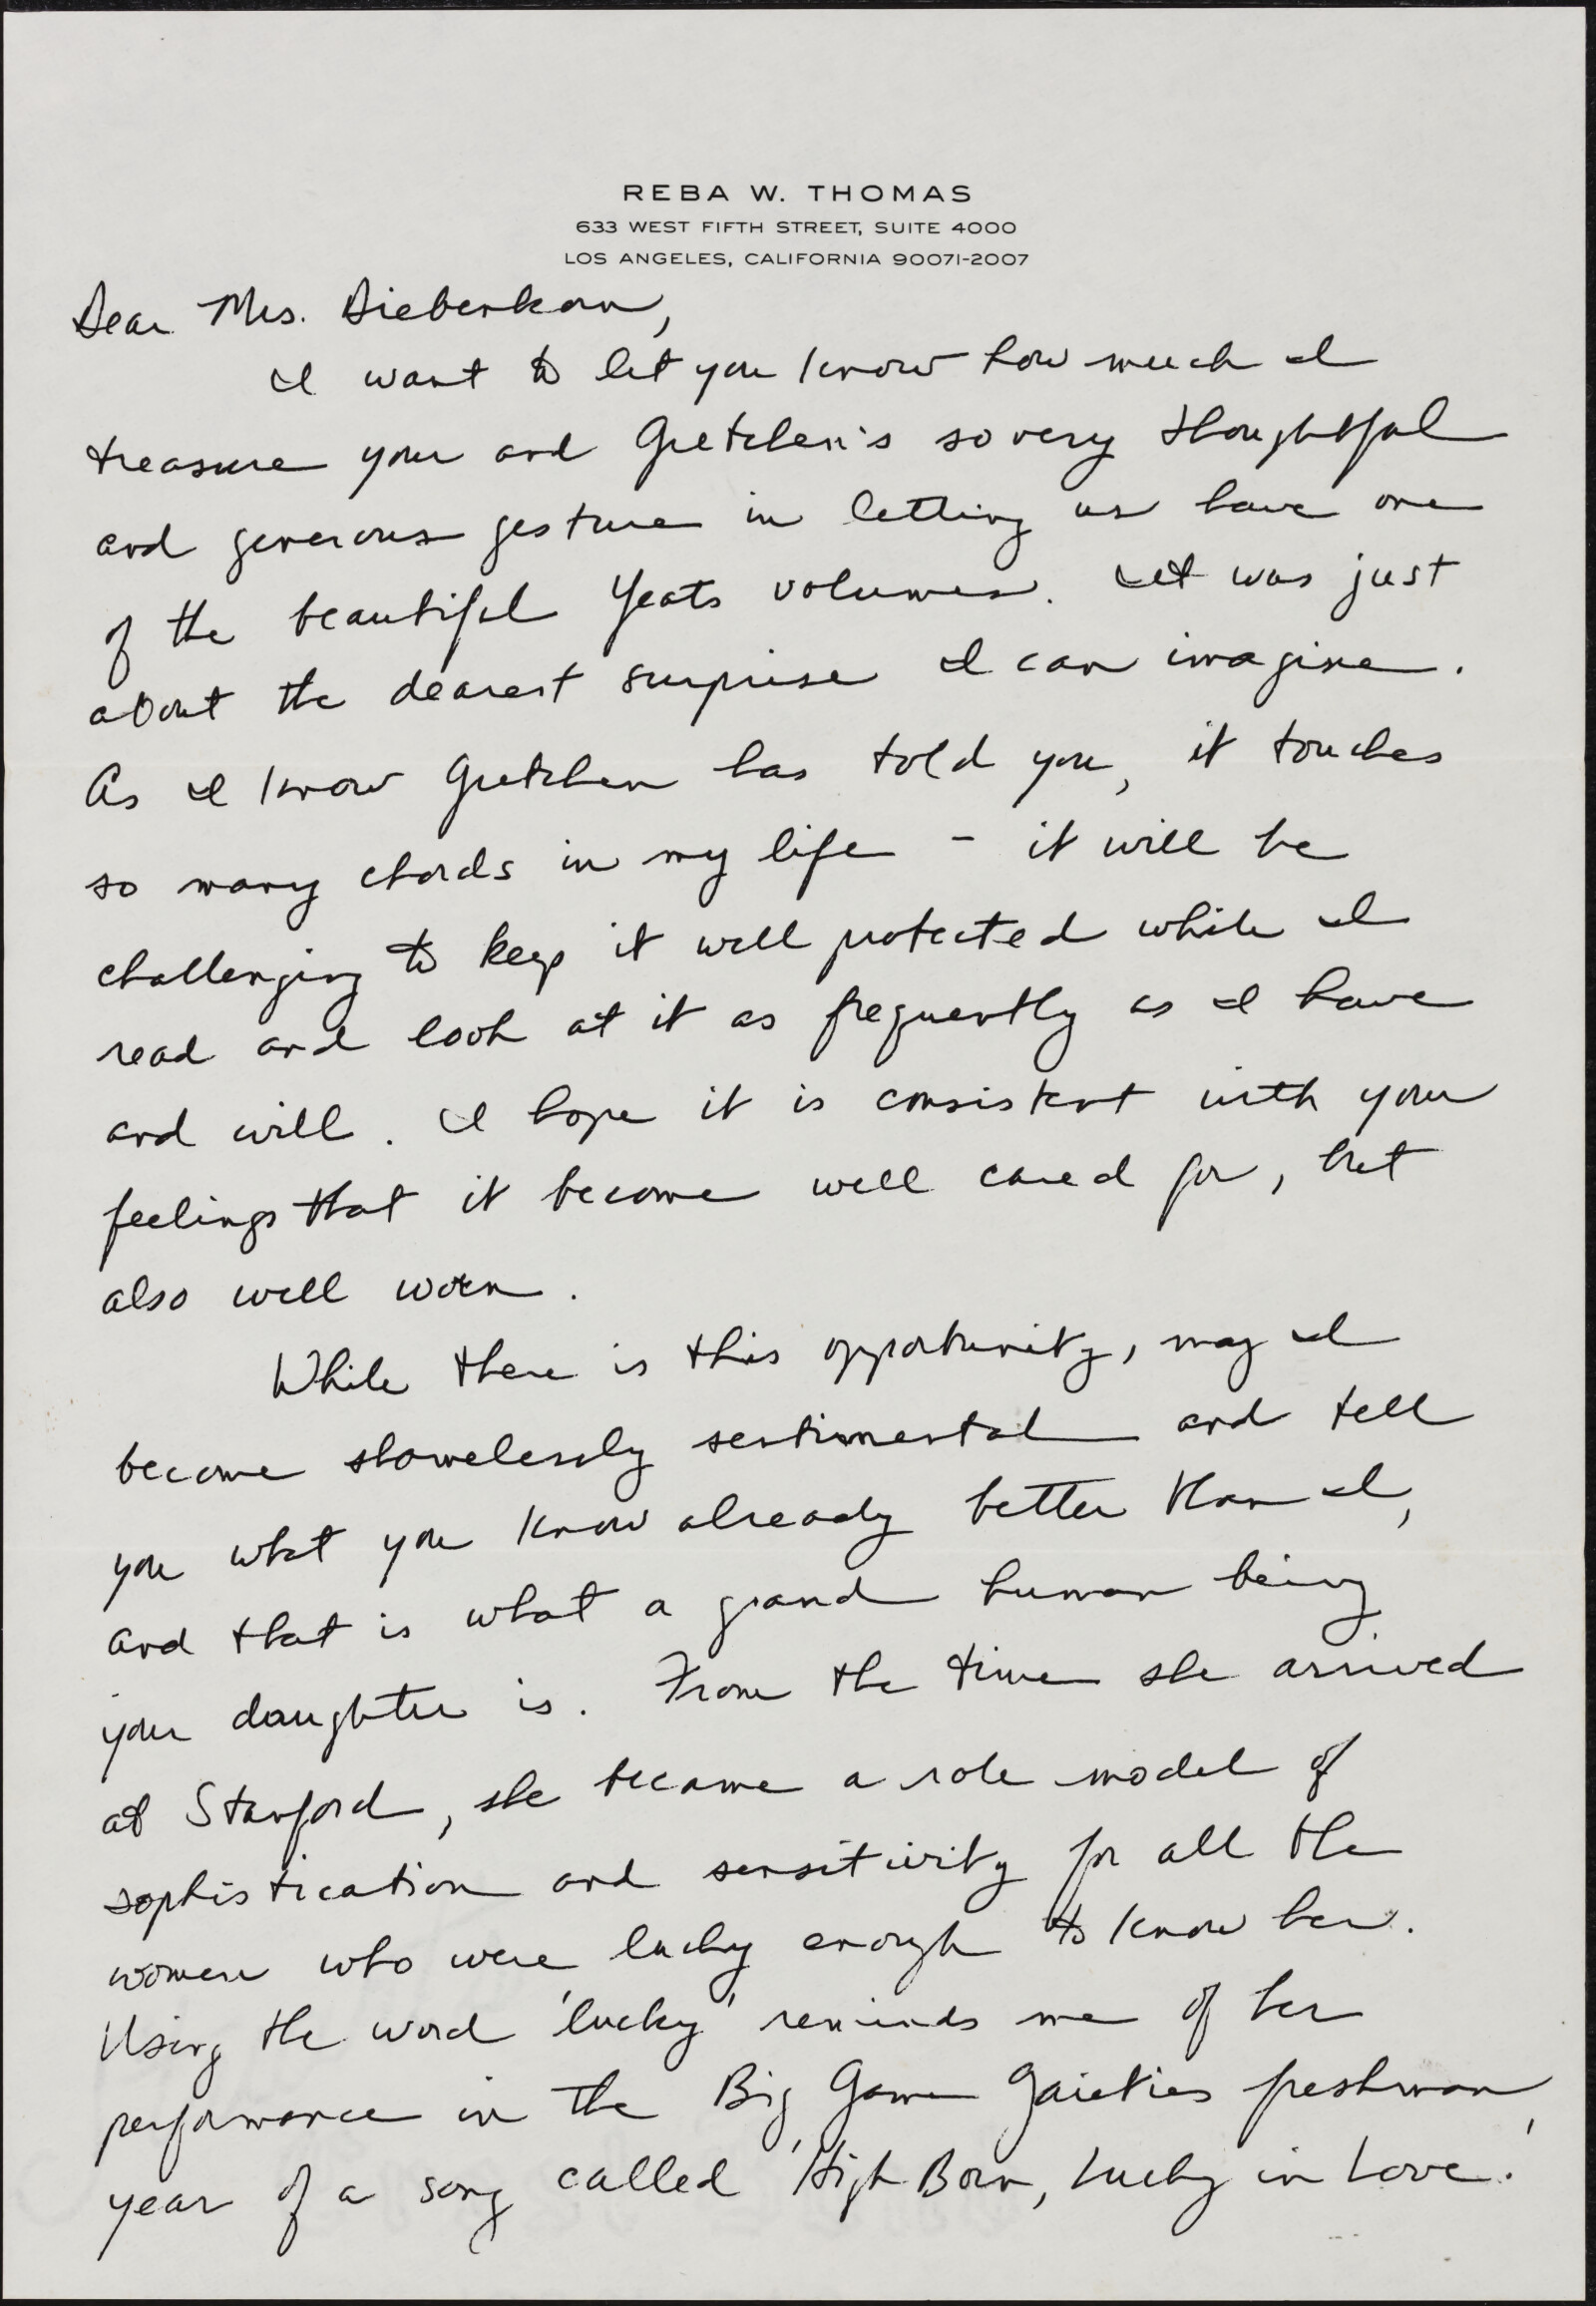 REBA W. THOMAS
633 WEST FIFTH STREET, SUITE 4000
LOS ANGELES, CALIFORNIA 90071-2007
Dear Mrs. Diebenkorn,
I want to let you know how much I
treasure your and Gretchen's so very thoughtful
and generous gesture in letting us have one
of the beautiful Yeats volumes. It was just
about the dearest surprise I can imagine.
As I know Gretchen has told you, it touches
so many chords in my life - it will be
challenging to keep it well protected while I
read and look at it as frequently as I have
and will. I hope it is consistent with your
feelings that it become well cared for, but
also well worn.
While there is this opportunity, may I
become shamelessly sentimental and tell
you what you know already better than I,
and that is what a grand human being
your daughter is. From the time she arrived
at Stanford, she became a role model of
sophistication and sensitivity for all the
women who were lucky enough to know her.
Using the word 'lucky' reminds me of her
performance in the Big Game Gaieties freshman
year of a song called 'High Born, Lucky in Love.'